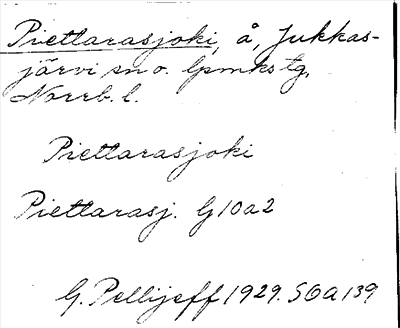 Piettarasjoki, å, Jukkas-
järvi sn o. lpmkstg,
Norrb. l.
Piettarasjoki
Piettarasj. G10a2
G. Pellijeff 1929. SOA 139